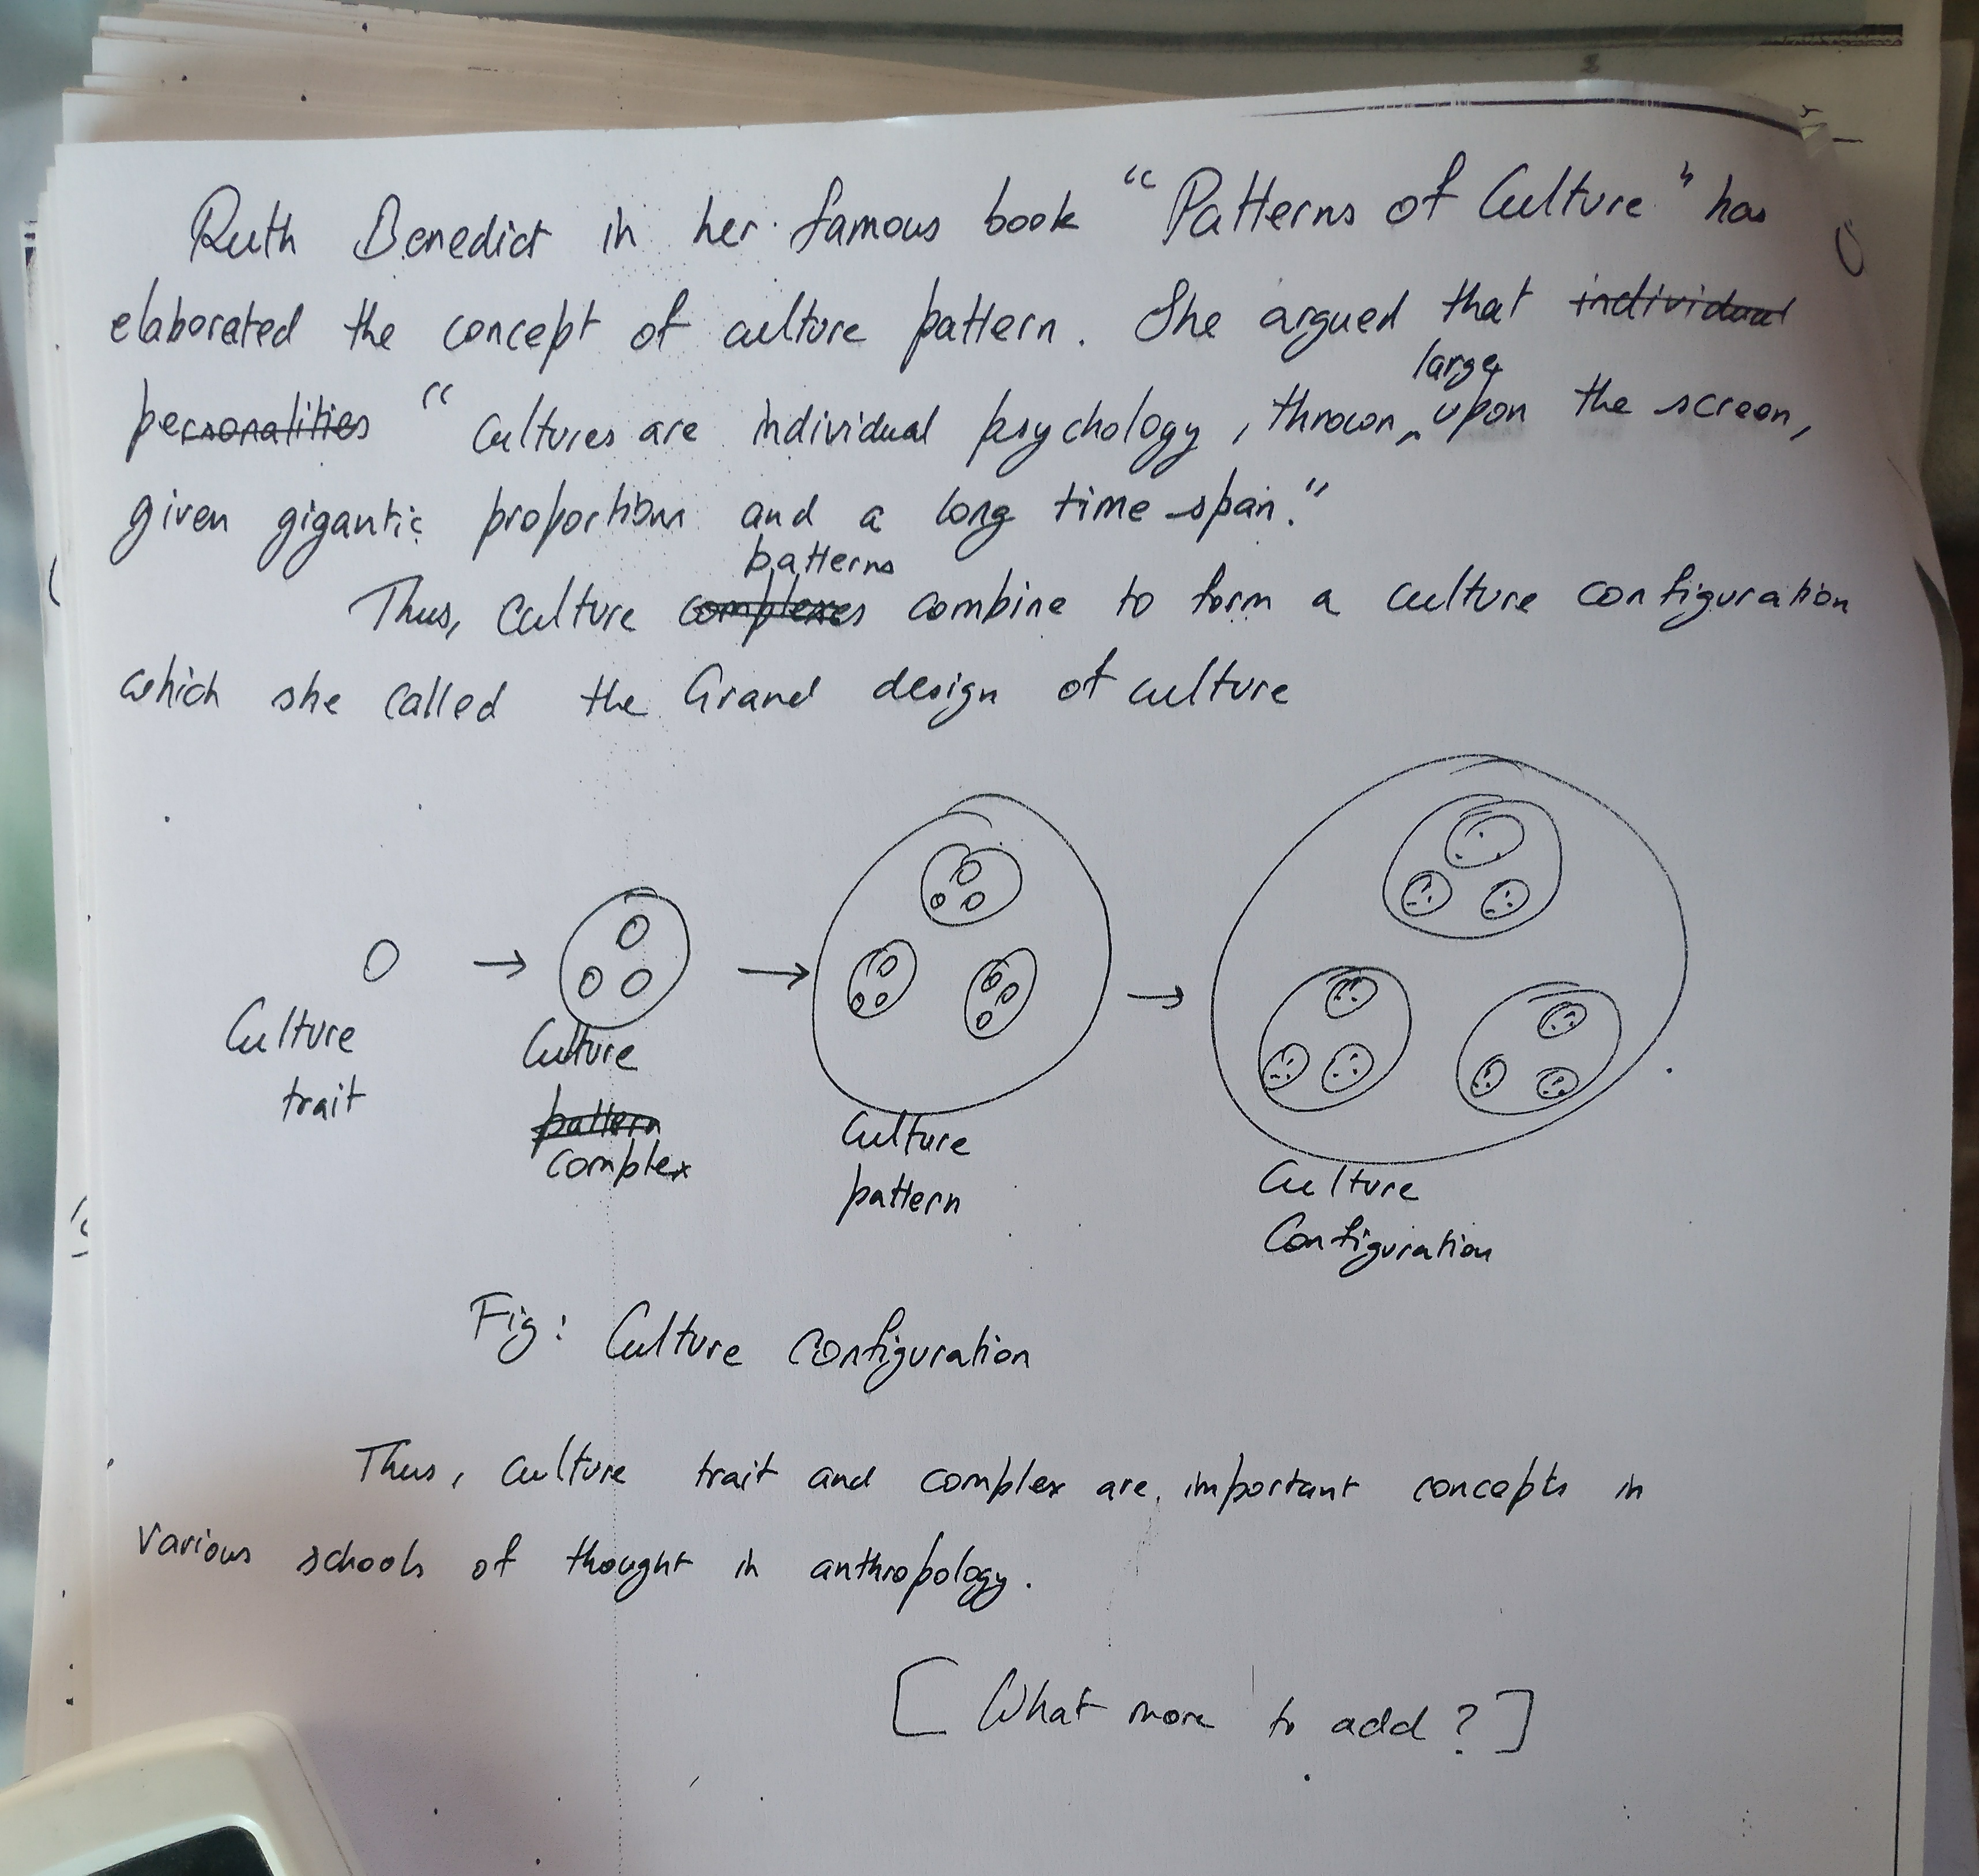 Ruth Benedict in her famous book "Patterns of Culture" has
elaborated the concept of culture pattern. She argued that individual
personalities "Cultures are individual psychology, thrown large upon the screen,
given gigantic proportions and a long time span."
Thus, culture complexes patterns combine to form a culture configuration
which she called the Grand design of culture
Culture trait
Culture pattern complex
Culture pattern
Culture Configuration
Fig: Culture configuration
Thus, culture trait and complex are important concepts in
various schools of thought in anthropology.
[What more to add?]